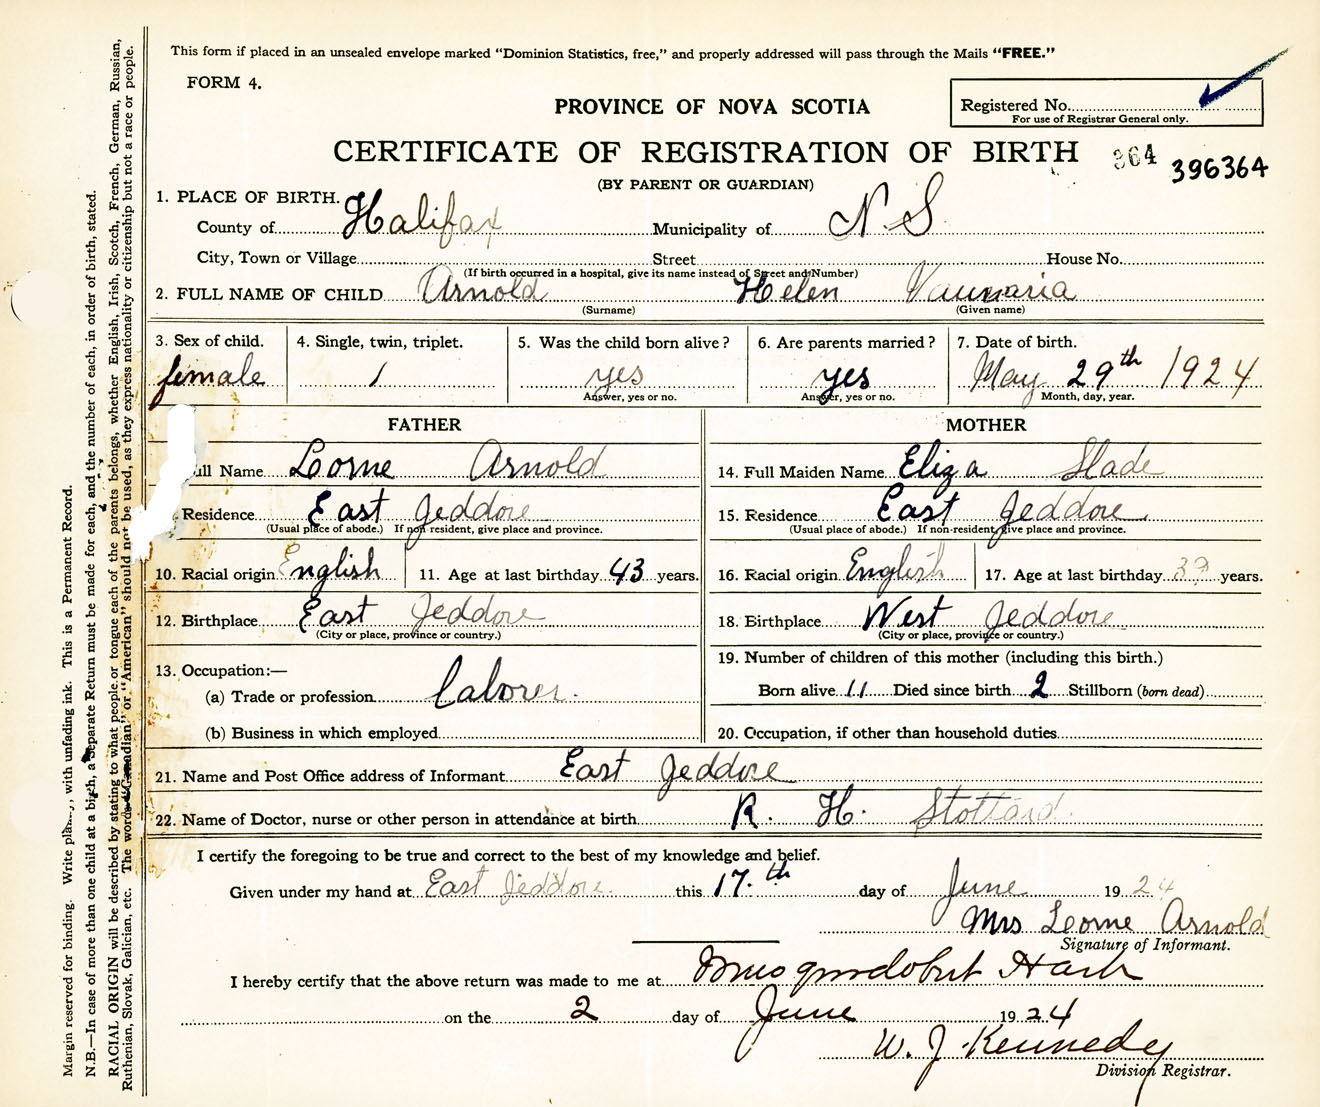 This form if placed in an unsealed envelope marked "Dominion Statistics, free," and properly addressed will pass through the Mails "FREE."
FORM 4.
PROVINCE OF NOVA SCOTIA
Registered No.
For use of Registrar General only.
CERTIFICATE OF REGISTRATION OF BIRTH
364 396364
(BY PARENT OR GUARDIAN)
1. PLACE OF BIRTH.
County of Halifax Municipality of N S
City, Town or Village Street House No.
(If birth occurred in a hospital, give its name instead of Street and Number)
2. FULL NAME OF CHILD Arnold Helen
(Surname) (Given name)
3. Sex of child. 4. Single, twin, triplet. 5. Was the child born alive? 6. Are parents married? 7. Date of birth.
female 1 yes yes May 29th 1924
Answer, yes or no. Answer, yes or no. Month, day, year.
FATHER MOTHER
ull Name Lorne Arnold 14. Full Maiden Name Eliza Slade
Residence East Jeddore 15. Residence East Jeddore
(Usual place of abode.) If non-resident, give place and province. (Usual place of abode.) If non-resident, give place and province.
10. Racial origin English 11. Age at last birthday 43 years. 16. Racial origin English 17. Age at last birthday 39 years.
12. Birthplace East Jeddore 18. Birthplace West Jeddore
(City or place, province or country.) (City or place, province or country.)
13. Occupation:— 19. Number of children of this mother (including this birth.)
(a) Trade or profession laborer. Born alive 11 Died since birth 2 Stillborn (born dead)
(b) Business in which employed 20. Occupation, if other than household duties
21. Name and Post Office address of Informant East Jeddore
22. Name of Doctor, nurse or other person in attendance at birth R. H. Stottard
I certify the foregoing to be true and correct to the best of my knowledge and belief.
Given under my hand at East Jeddore. this 17.th day of June 1924
Mrs Lorne Arnold
Signature of Informant.
I hereby certify that the above return was made to me at Musquodoboit Harb
on the 2 day of June 1924
W. J. Kennedy
Division Registrar.
Margin reserved for binding. Write plainly, with unfading ink. This is a Permanent Record.
N.B.—In case of more than one child at a birth, a Separate Return must be made for each, and the number of each, in order of birth, stated.
RACIAL ORIGIN will be described by stating to what people or tongue each of the parents belongs, whether English, Irish, Scotch, French, German, Russian,
Ruthenian, Slovak, Galician, etc. The words "Canadian" or "American" should not be used, as they express nationality or citizenship but not a race or people.